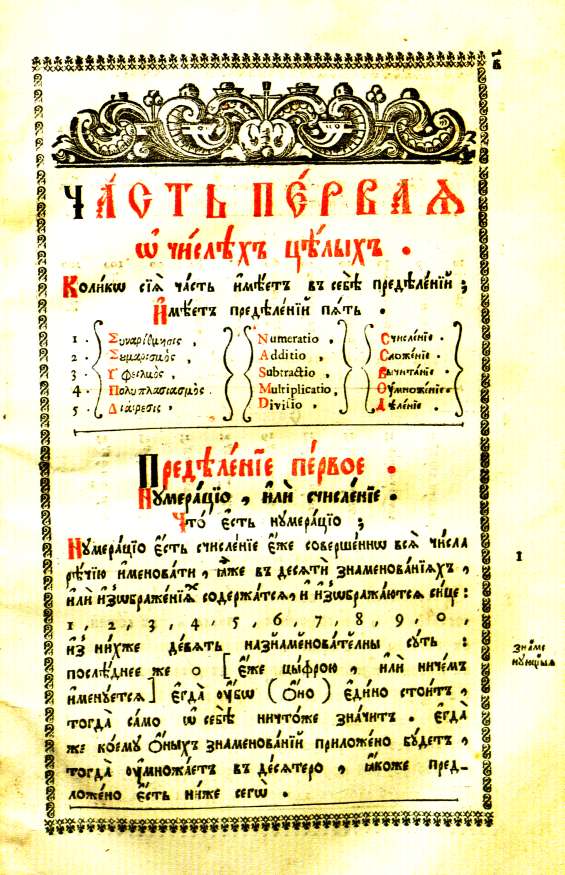 а҃
Ча́сть пе́рваѧ
Ѡ҆ чи́слѣхъ цѣ́лыхъ .
Коли́кѡ сїѧ̀ ча́сть и҆мѣ́етъ въ себѣ̀ предѣле́нїй ;
И҆мѣ́етъ предѣле́нїй пѧ́ть .
1 . Συναρίθμησις , Numeratio , Счисле́нїе .
2 . Συμαρισμὸς , Additio , Сложе́нїе .
3 . Ὑφειλμὸς , Subtractio , Вычита́нїе .
4 . Πολυπλασιασμὸς . Multiplicatio , Оу҆множе́нїе .
5 . Διαίρεσις , Divisio , Дѣле́нїе .
Предѣле́нїе пе́рвое .
Нꙋмера́цїо , и҆лѝ счисле́нїе .
Что́ є҆сть нꙋмера́цїо ;
Нꙋмера́цїо є҆́сть счисле́нїе є҆́же соверше́ннѡ всѧ̀ чи́сла
рѣ́чїю и҆менова́ти , ꙗ҆̀же въ десѧтѝ знаменова́нїѧхъ ,
и҆лѝ и҆з̾ѡбраже́нїѧхъ содержа́тсѧ , и҆ и҆з̾ѡбража́ютсѧ си́це :
1 , 2 , 3 , 4 , 5 , 6 , 7 , 8 , 9 , 0 ,
и҆з̾ ни́хже де́вѧть назнаменова́телны сꙋ́ть :
послѣ́днее же 0 [ є҆́же цы́фрою , и҆лѝ ниче́мъ
и҆менꙋ́етсѧ ] є҆гда̀ оу҆́бѡ ( Ѻ҆но̀ ) є҆ди́но стои́тъ ,
тогда̀ са́мо ѡ҆ себѣ̀ ничто́же зна́читъ . є҆гда̀
же кое́мꙋ ѻ҆́ныхъ знаменова́нїй приложе́но бꙋ́детъ ,
тогда̀ оу҆множа́етъ въ де́сѧтеро , ꙗ҆́коже пред-
ложе́но є҆́сть ни́же сегѡ̀ .
1
зна́ме
нꙋ́ющыѧ